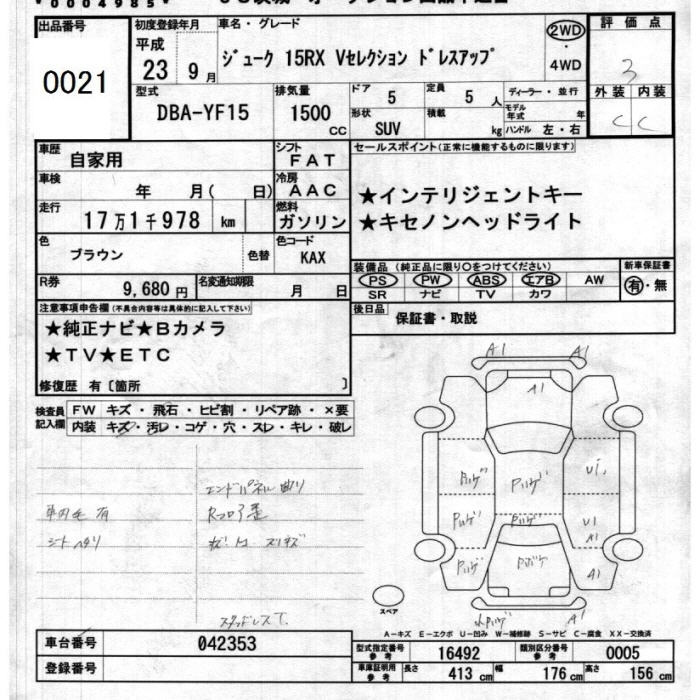 出品番号
0021
初度登録年月
平成
23 9月
車名・グレード
ジューク 15RX Vセレクション ドレスアップ
2WD
・
4WD
評価点
3
外装 内装
C C
型式
DBA-YF15
排気量
1500
cc
ドア
5
定員
5 人
形状
SUV
積載
kg
ディーラー・並行
モデル年式 年
ハンドル 左・右
車歴
自家用
シフト
FAT
車検
年 月( 日)
冷房
AAC
走行
17万1千978 km
燃料
ガソリン
色
ブラウン
色替
色コード
KAX
R券
9,680円
名変通知期限
月 日
セールスポイント(正常に機能するものに限ります)
★インテリジェントキー
★キセノンヘッドライト
装備品 (純正品に限り○をつけてください)
PS PW ABS エアB AW
SR ナビ TV カワ
新車保証書
有・無
後日品
保証書・取説
注意事項申告欄(不具合内容等は具体的に記入して下さい)
★純正ナビ★Bカメラ
★TV★ETC
修復歴 有〔箇所 〕
検査員記入欄
FW キズ・飛石・ヒビ割・リペア跡・×要
内装 キズ・汚レ・コゲ・穴・スレ・キレ・破レ
エンドパネル曲り
車内毛有
シートヘタリ
スタッドレスT.
A1 A1
A1
A1
A1
A1
スペア
A-キズ E-エクボ U-凹み W-補修跡 S-サビ C-腐食 XX-交換済
車台番号
042353
登録番号
型式指定番号
参考
16492
類別区分番号
参考
0005
車庫証明用
参考
長さ 413 cm 幅 176 cm 高さ 156 cm